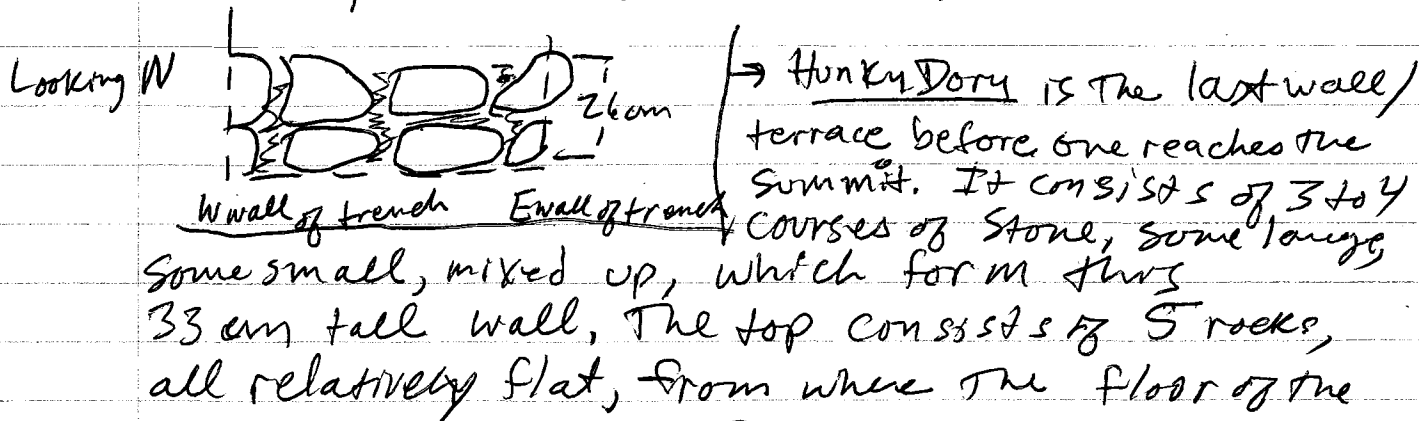 Looking N
26cm
W wall of trench E wall of trench
→ Hunky Dory is the last wall/
terrace before one reaches the
summit. It consists of 3 to 4
courses of stone, some large,
some small, mixed up, which form this
33 cm tall wall, The top consists of 5 rocks,
all relatively flat, from where the floor of the